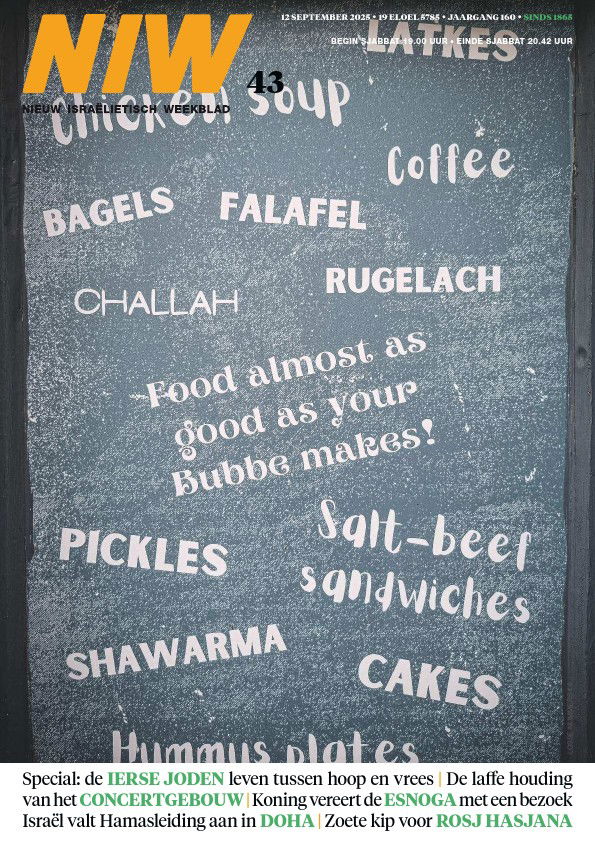 NIW
NIEUW ISRAËLIETISCH WEEKBLAD
43
12 SEPTEMBER 2025 • 19 ELOEL 5785 • JAARGANG 160 • SINDS 1865
BEGIN SJABBAT 19.00 UUR • EINDE SJABBAT 20.42 UUR
LATKES
chicken soup
Coffee
BAGELS
FALAFEL
RUGELACH
CHALLAH
Food almost as
good as your
Bubbe makes!
PICKLES
Salt-beef
sandwiches
SHAWARMA
CAKES
Hummus plates
Special: de IERSE JODEN leven tussen hoop en vrees | De laffe houding
van het CONCERTGEBOUW | Koning vereert de ESNOGA met een bezoek
Israël valt Hamasleiding aan in DOHA | Zoete kip voor ROSJ HASJANA